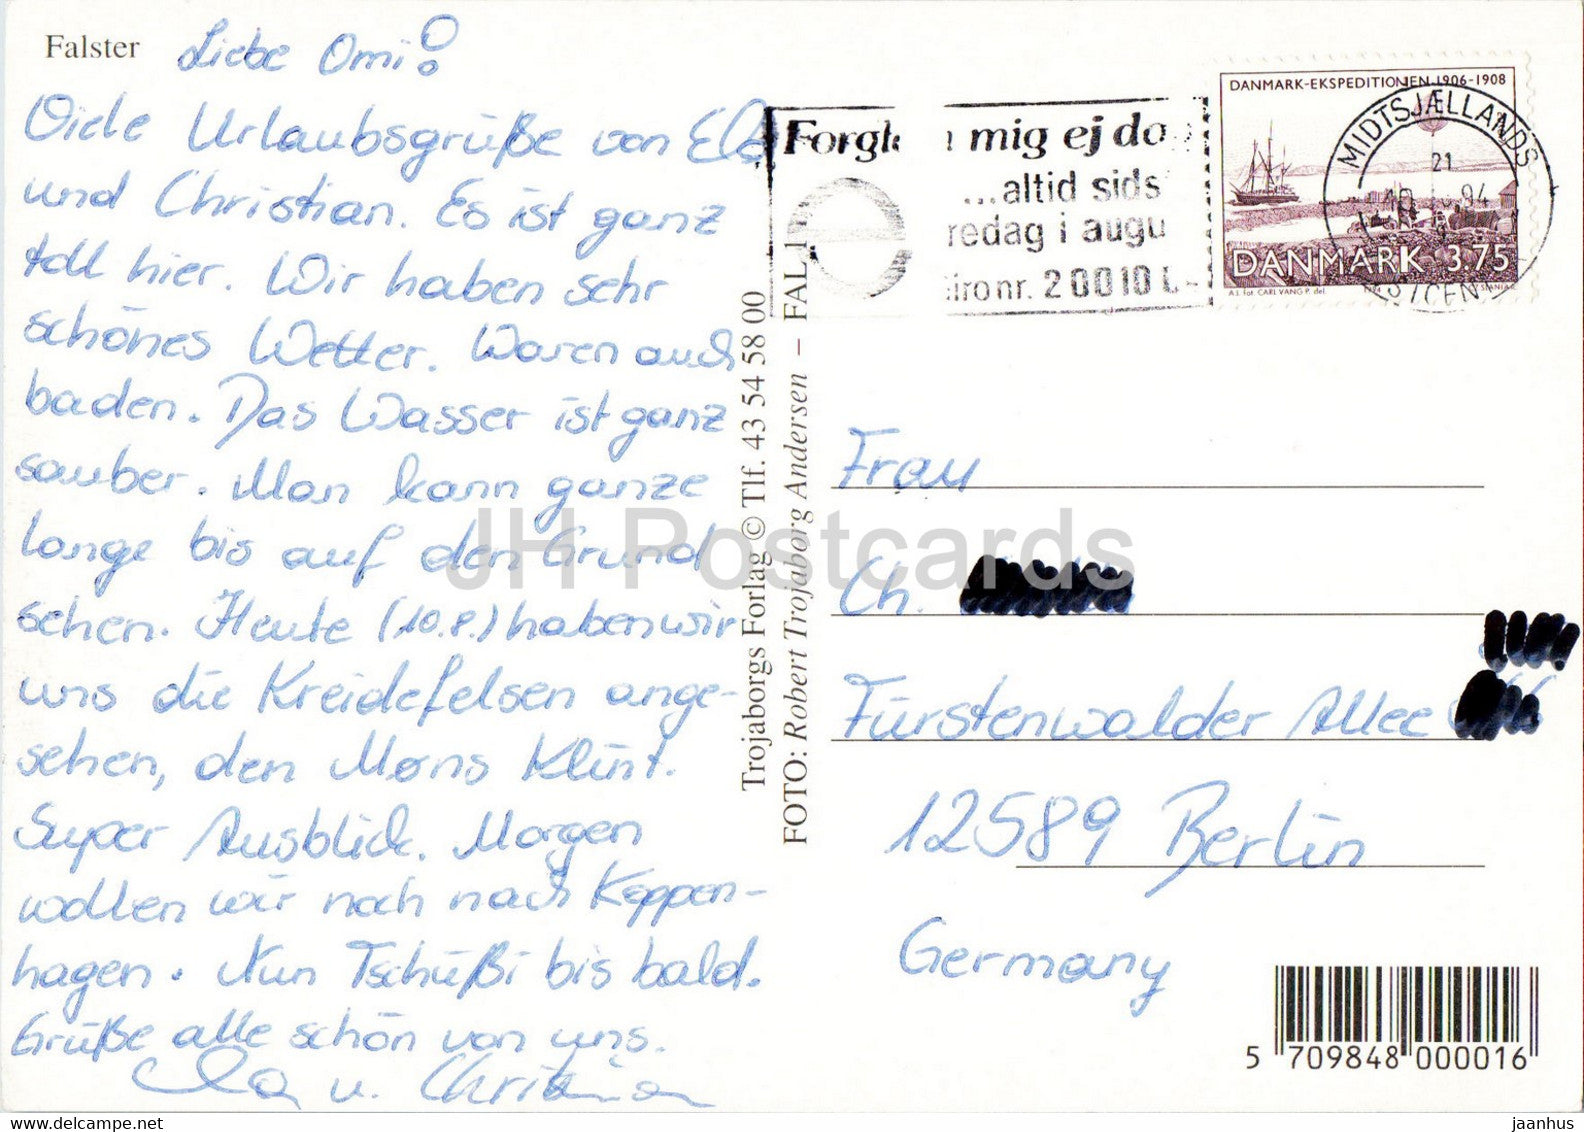 Falster
Liebe Omi!
Viele Urlaubsgrüße von
und Christian. Es ist ganz
toll hier. Wir haben sehr
schönes Wetter. Waren auch
baden. Das Wasser ist ganz
sauber. Man kann ganze
lange bis auf den Grund
sehen. Heute (10.8.) haben wir
uns die Kreidefelsen ange-
sehen, den Møns Klint.
Super Ausblick. Morgen
wollen wir noch nach Koppen-
hagen. Nun Tschüßi bis bald.
Grüße alle schön von uns.
u. Christian
Trojaborgs Forlag © Tlf. 43 54 58 00
FOTO: Robert Trojaborg Andersen – FAL 1
mig ej
...altid sids
redag i augu
nr. 20010
DANMARK-EKSPEDITIONEN 1906-1908
DANMARK 3.75
CARL VANG P. del.
MIDTSJÆLLANDS
21
94
Frau
Ch.
Fürstenwalder Allee
12589 Berlin
Germany
5 709848 000016
JH Postcards
jaanhus @ www.delcampe.net